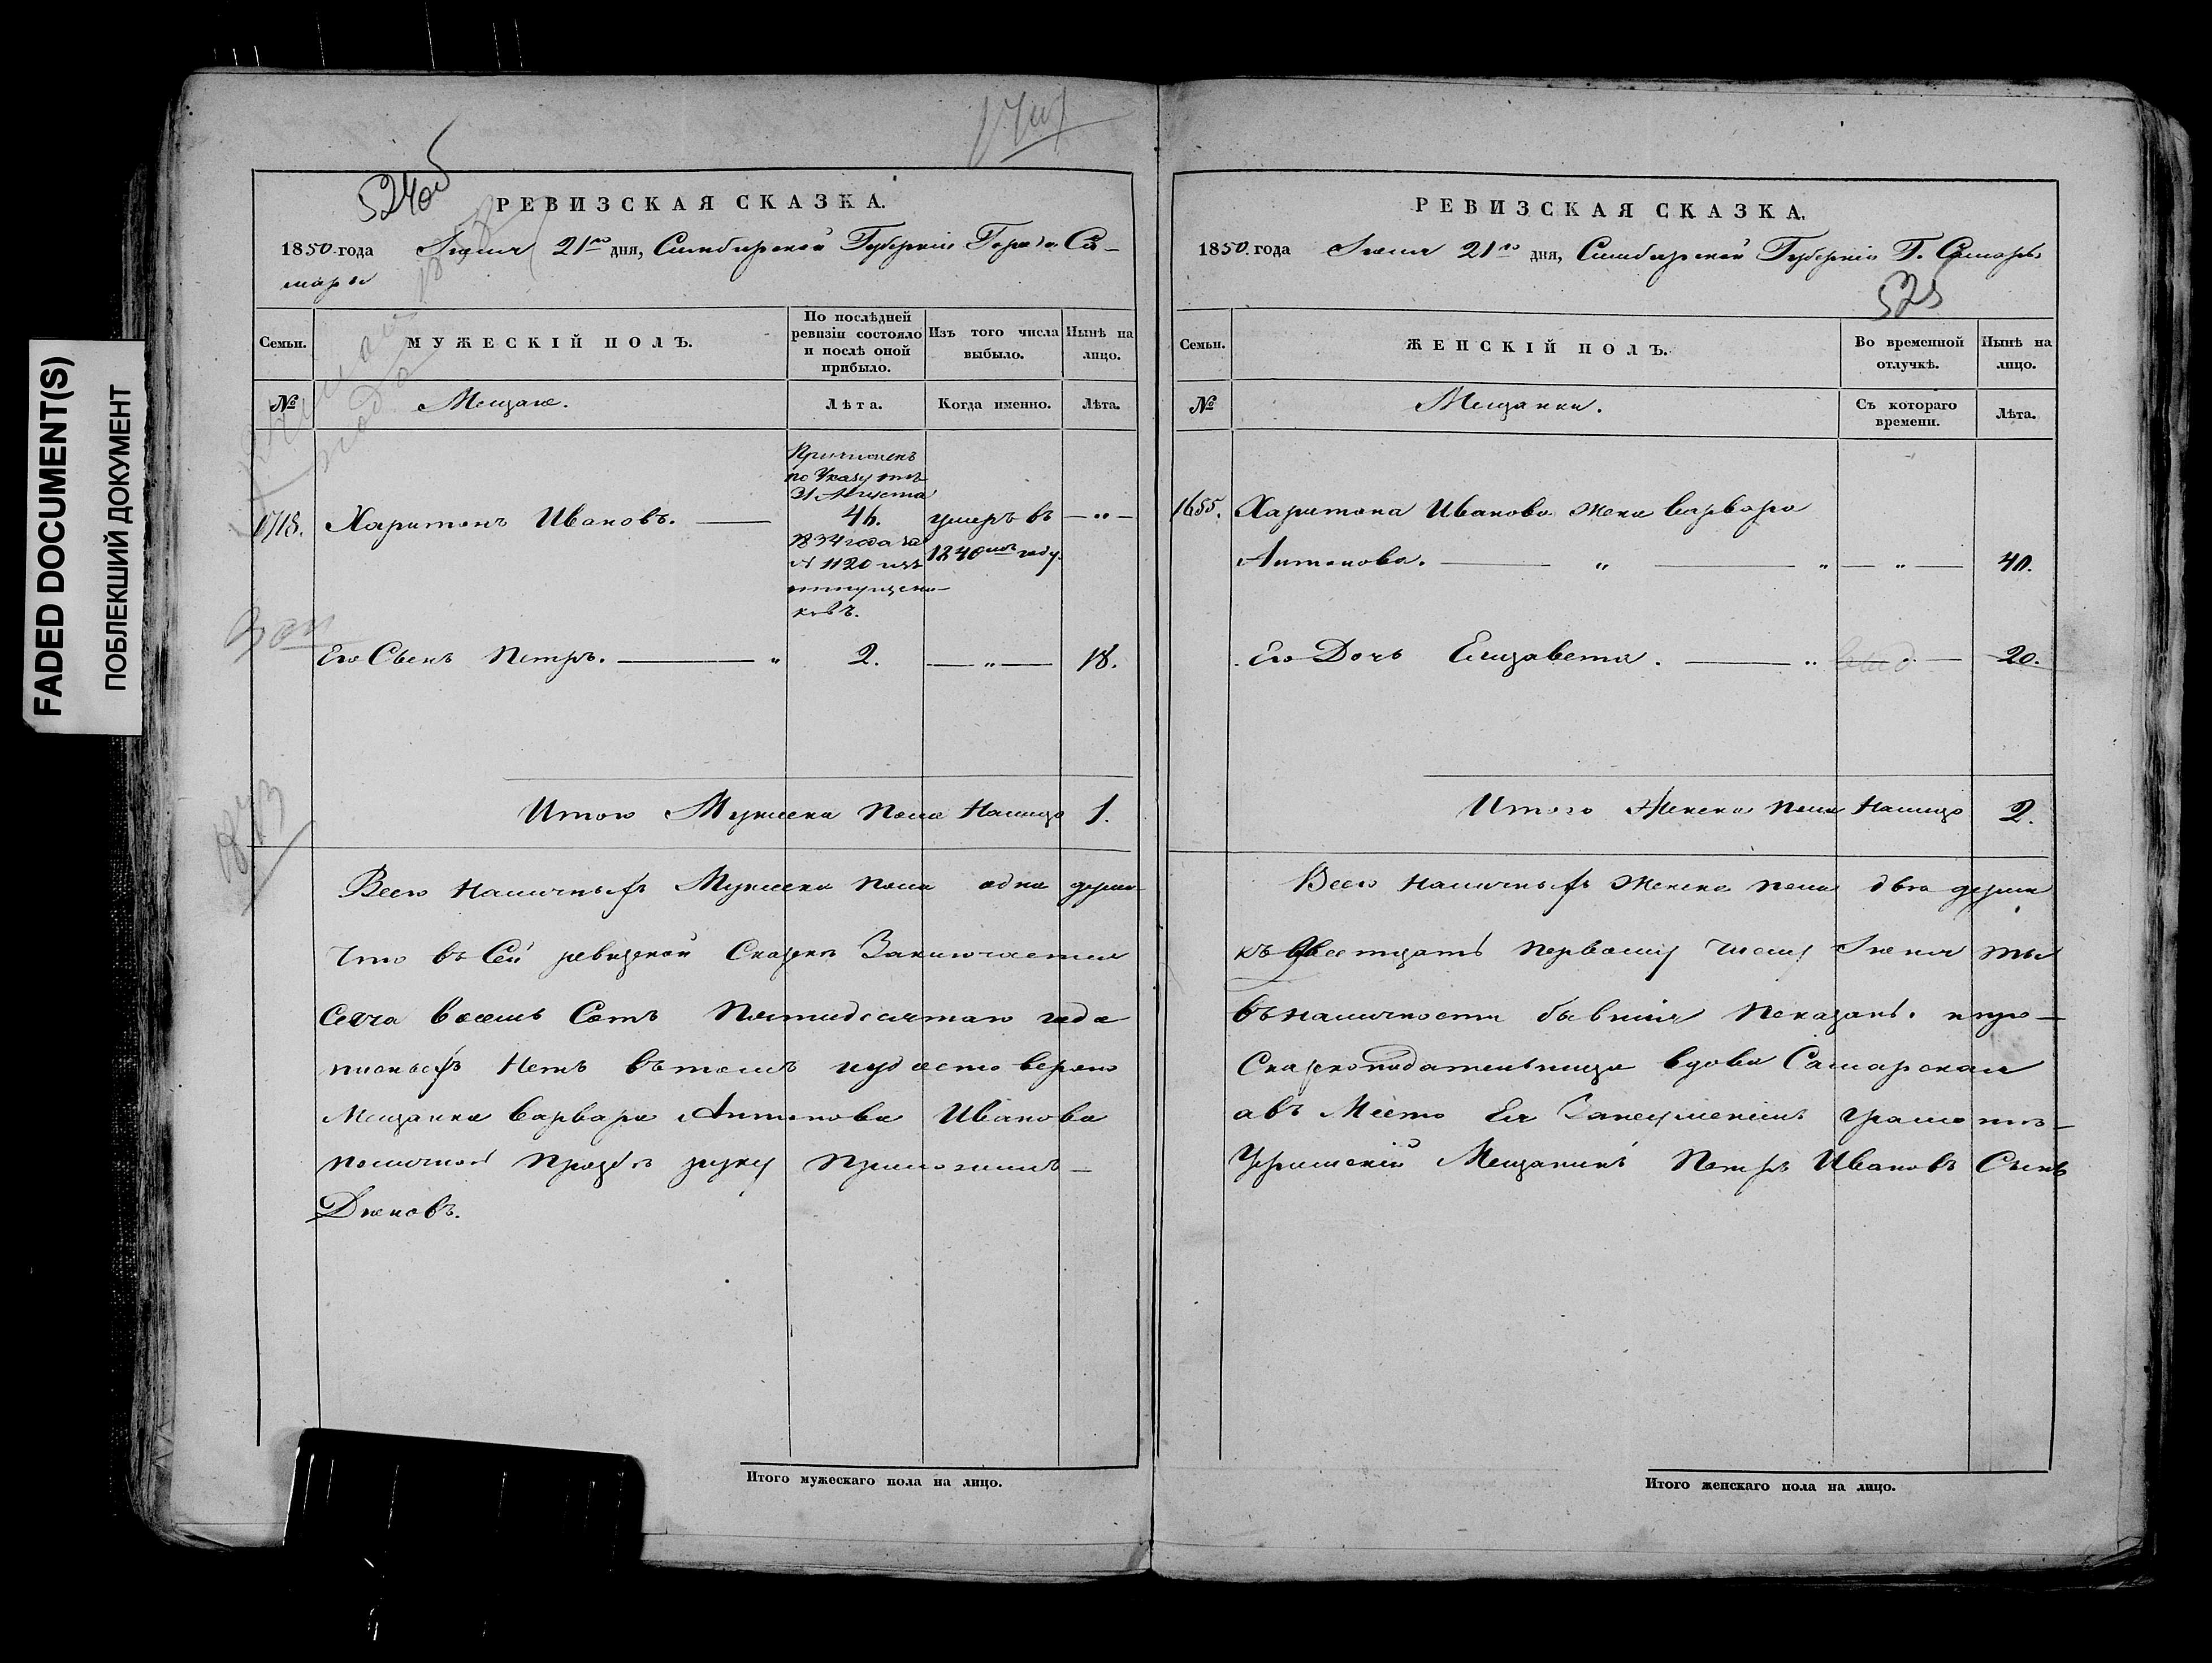 FADED DOCUMENT(S)
ПОБЛЕКШИЙ ДОКУМЕНТ
524об
РЕВИЗСКАЯ СКАЗКА.
1850 года Іюня 21го дня, Симбирской Губерніи Города Са-
мары
Семьи.
МУЖЕСКІЙ ПОЛЪ.
По послѣдней
ревизіи состояло
и послѣ оной
прибыло.
Изъ того числа
выбыло.
Нынѣ на
лицо.
№
Мещане.
Лѣта.
Когда именно.
Лѣта.
Причисленъ
по Указу отъ
31 Августа
1718. Харитонъ Ивановъ. 46. умеръ въ
1834 года за
№ 1120 изъ
1840мъ году.
отпущени-
ковъ.
Его Сынъ Петръ. 2. 18.
Итого Мужеска Пола Налицо 1.
Всего Наличныхъ Мужеска Пола одна душа
Что въ Сей ревизской Сказке Заключается
Сеча восемь Сотъ Пятидесятаго года
писныхъ Нетъ въ томъ
Мещанка Варвара Антонова Иванова
по личной Прозбе руку Приложилъ
Дюковъ.
Итого мужескаго пола на лицо.
РЕВИЗСКАЯ СКАЗКА.
1850. года Іюня 21го дня, Симбирской Губерніи Г. Самары
525
Семьи.
ЖЕНСКІЙ ПОЛЪ.
Во временной
отлучкѣ.
Нынѣ на
лицо.
№
Мещанки.
Съ котораго
времени.
Лѣта.
1655. Харитона Иванова жена Варвара
Антонова. 40.
Его Дочь Елизавета. 20.
Итого Женска пола Налицо 2.
Всего Наличныхъ Женска пола две души
къ Двестцать Первому Числу Іюня ты
въ наличности бывшія Показаны. и про-
Сказкоподательница вдова Самарская
а въ Место Ея Занеуменіемъ грамоте
Мещанинъ Петръ Ивановъ Сынъ
Итого женскаго пола на лицо.